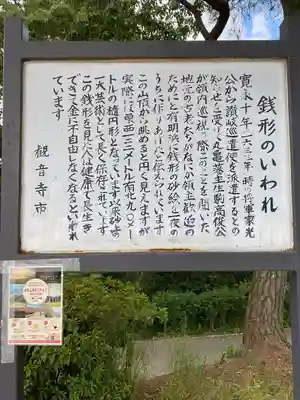 銭形のいわれ
寛永十年(一六三三年)時の将軍家光
公から讃岐巡遣使を派遣するとの
知らせを受けて丸亀藩主生駒高俊公
が領内巡視の際このことを聞いた
地元の古老たちがわが領主歓迎の
ためにと有明浜に銭形の砂絵を一夜の
うちに作りあげたと伝えられています
この山頂から眺めると円く見えますが
実際には東西一二二メートル南北九〇メー
トルの楕円形となっています以来砂上の
一大芸術として長く保存されています
この銭形を見た人は健康で長生き
できて金に不自由しなくなるといわれ
ています
観音寺市